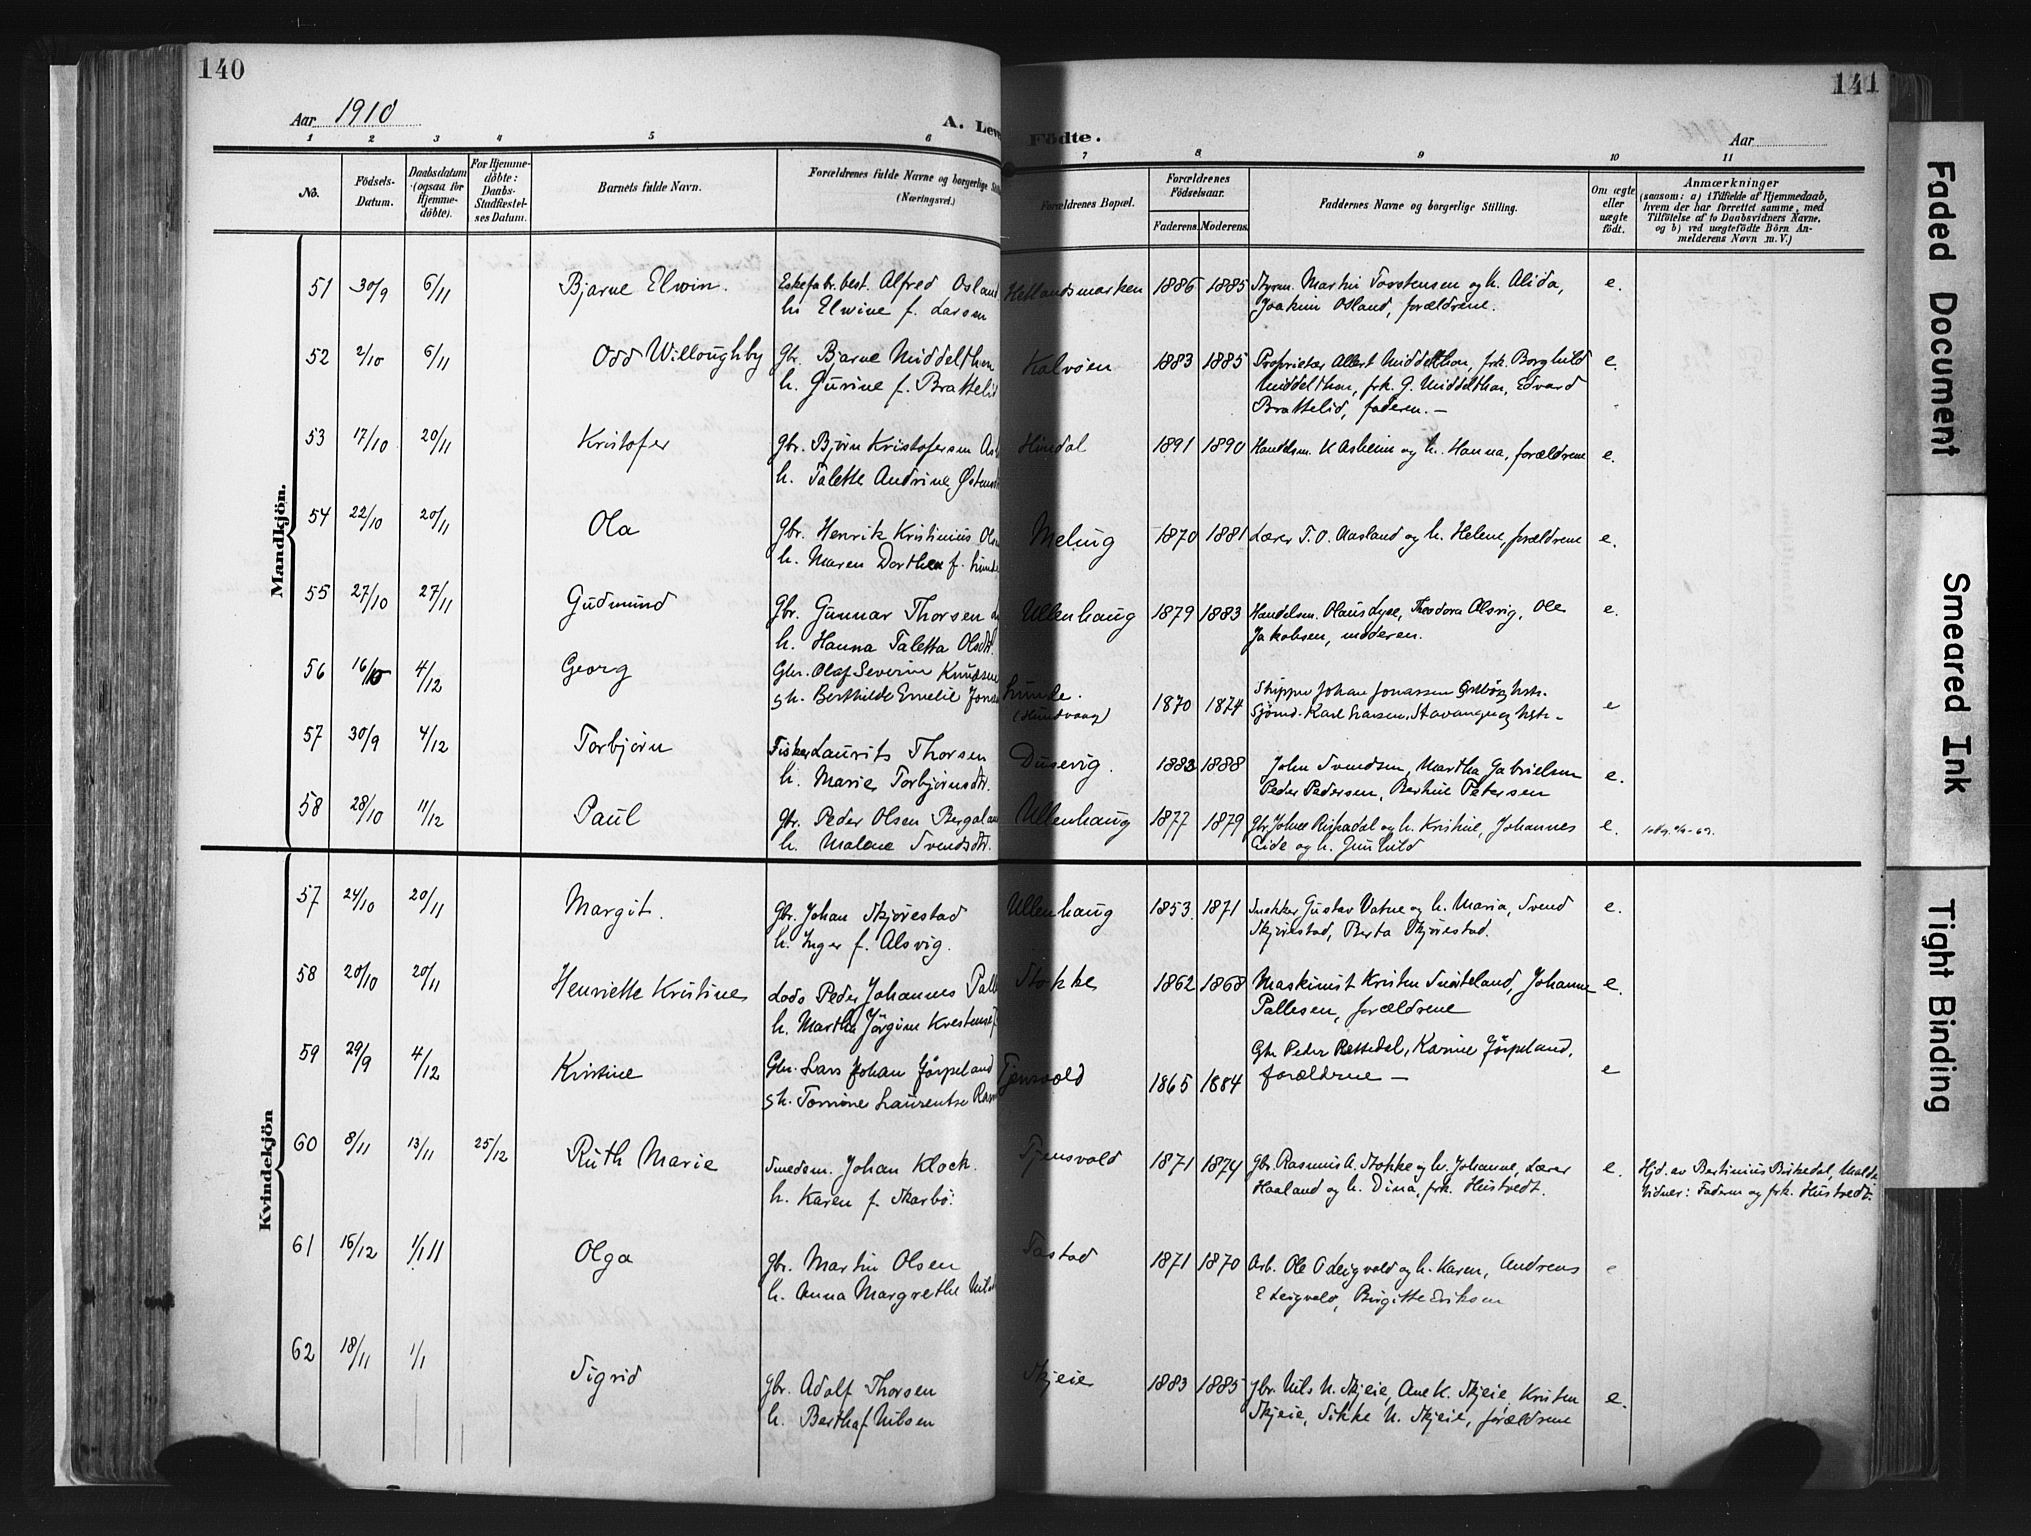 140
141
Aar 1910
A. Leve Födte.
Aar
1 2 3 4 5 6 7 8 9 10 11
No.
Födsels-Datum.
Daabsdatum (ogsaa for Hjemme-döbte).
For Hjemme-döbte: Daabs-Stadfæstel-ses Datum.
Barnets fulde Navn.
Forældrenes fulde Navne og borgerlige Stil (Næringsvei.)
Forældrenes Bopæl.
Forældrenes Födselsaar.
Faderens. Moderens.
Faddernes Navne og borgerlige Stilling.
Om ægte eller uægte födt.
Anmærkninger
(saasom: a) i Tilfælde af Hjemmedaab,
hvem der har forrettet samme, med
Tilföielse af to Daabsvidners Navne,
og b) ved uægtefödte Börn An-
melderens Navn m. V.)
Mandkjön.
51 30/9 6/11 Bjarne Elwin. Eskefabr.best. Alfred Osland Hetlandsmarken 1886 1885 Styrm. Martin Torstensen og h. Alida, e.
h. Elwine f. Larsen Joakim Osland, forældrene.
52 2/10 6/11 Odd Willoughby Gbr. Bjarne Middelthon Kalvøen 1883 1885 Proprietær Albert Middelthon, frk. Borghild e.
h. Gurine f. Brattelid Middelthon, frk. G. Middelthon, Edvard
Brattelid, faderen. —
53 17/10 20/11 Kristofer Gbr. Bjørn Kristofersen As Hindal 1891 1890 Handelsm. K Asheim og h. Hanna, forældrene e.
h. Talette Andrine
54 22/10 20/11 Ola Gbr. Henrik Kristinius Ols Meling 1870 1881 Lærer T. O. Aasland og h. Helene, forældrene e.
h. Maren Dorthea f. Lunde
55 27/10 27/11 Gudmund Gbr. Gunnar Thorsen Ullenhaug 1879 1883 Handelsm. Olaus Lyse, Theodora Alsvig, Ole e.
h. Hanna Taletta Olsdtr. Jakobsen, moderen.
56 16/10 4/12 Georg Gbr. Olaf Severin Knudsen Lunde. (Hundvaag) 1870 1874 Skipper Johan Jonassen hstr. e
h. Berthilde Emelie Jonas Sjømd. Karl Larsen, Stavanger og hstr.
57 30/9 4/12 Torbjørn Fisker Laurits Thorsen Dusevig. 1883 1888 John Svendsen, Martha Gabrielsen e.
h. Marie Torbjørnsdtr. Peder Pedersen, Bertine Petersen
58 28/10 11/12 Paul Gbr. Peder Olsen Bergeland Ullenhaug 1877 1879 Gbr. Johne og h. Kristine, Johannes e.
h. Malene Svendsdtr. Eide og h. Gunhild
Kvindekjön
57 24/10 20/11 Margit. Gbr. Johan Skjørestad Ullenhaug 1853 1871 Snekker Gustav Vatne og h. Maria, Svend e.
h. Inger f. Alsvig. Skjørestad, Berta Skjørestad.
58 20/10 20/11 Henriette Kristine Lods Peder Johannes Palle Stokke 1862 1868 Maskinist Kristen Snarteland, Johanne e.
h. Martha Jørgine Pallesen, forældrene
59 29/9 4/12 Kristine Gbr. Lars Johan Jörpeland Tjensvold 1865 1884 Gbr Peder Rettedal, Karine Jörpeland, e
h. Tomine Laurentse Rasm forældrene —
60 8/11 13/11 25/12 Ruth Marie Smedem. Johan Klock. Tjensvold 1871 1874 Gbr. Rasmus A. Stokke og h. Johanne, Lærer e. Hjd. av Bertinius Birkedal,
h. Karen f. Skarbø. Haaland og h. Dina, frk. Hustvedt. Vidner: Faderen og frk. Hustvedt.
61 16/12 1/1 11 Olga Gbr. Martin Olsen Tastad 1871 1870 Arb. Ole og h. Karen, Andreas e
h. Anna Margrethe Nils Birgitte Eriksen
62 18/11 1/1 Sigrid Gbr. Adolf Thorsen Skjeie 1883 1885 Gbr. Nils N. Skjeie, Ane K. Skjeie, Kristen e.
h. Bertha f. Nilsen Skjeie, Sikke N. Skjeie, forældrene
Faded Document
Smeared Ink
Tight Binding